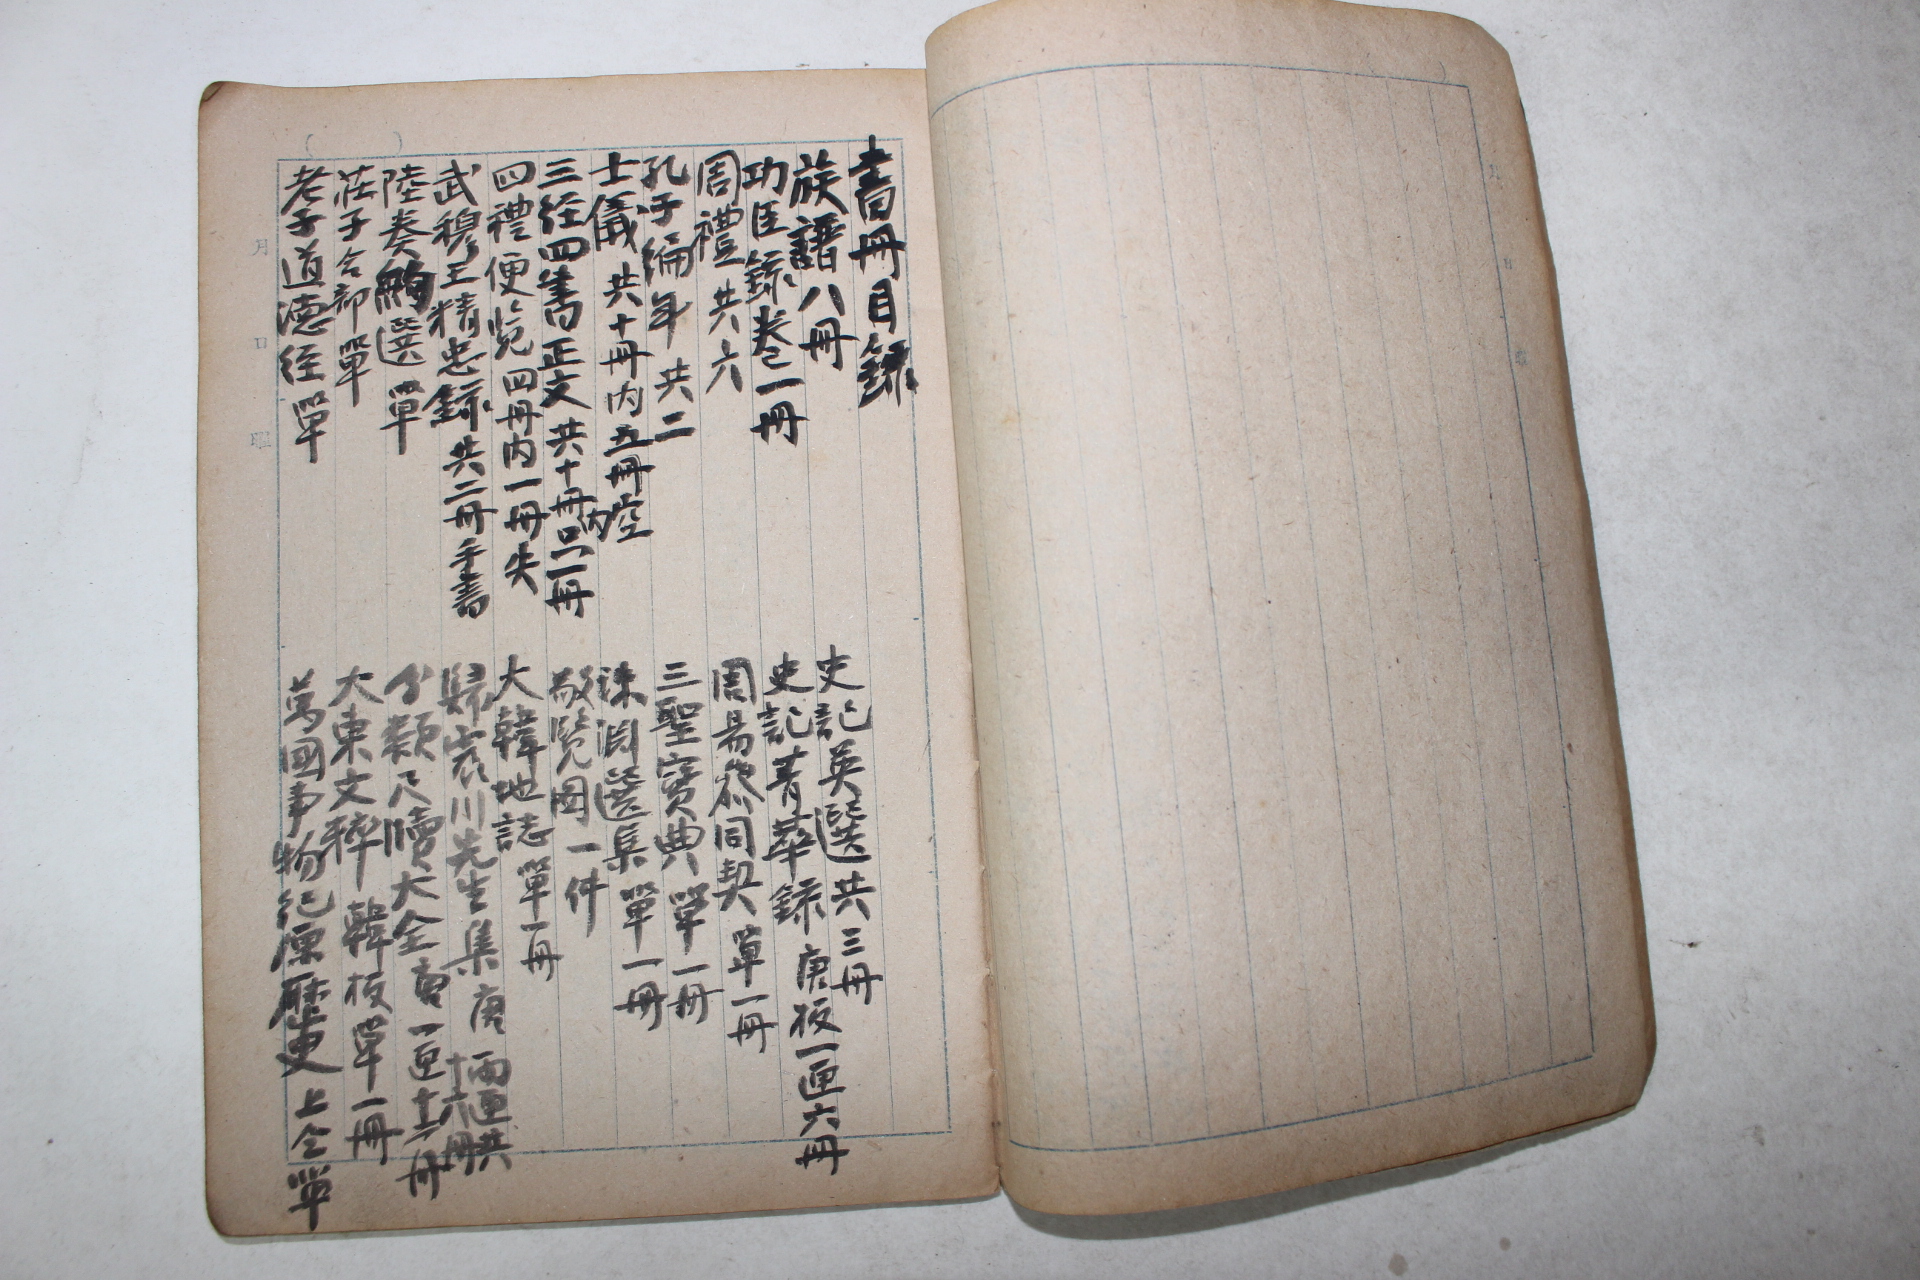 書冊目錄
族譜八冊
功臣錄卷之一冊
周禮 共六
孔子編年 共二
士儀 共十冊內五冊空
三経四書正文 共十冊內 只一二冊
四禮便覽 四冊內一冊失
武穆王精忠錄 共二冊 手書
陸奏約選 單
莊子合部 單
老子道德経 單
史記英選 共三冊
史記菁華錄 唐板一匣六冊
周易叅同契 單一冊
三聖寶典 單一冊
洙淵選集 單一冊
敬覽圖 一件
大韓地誌 單一冊
歸震川先生集 唐 兩匣共十六冊
分類尺牘大全 唐一匣十二冊
大東文粹 韓板單一冊
萬國事物紀原歷史 上仝單
月
日
曜